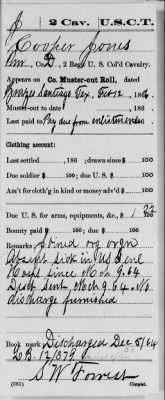 J 2 Cav. U.S.C.T.
Cooper Jones
, Co. D, 2 Reg't U. S. Col'd Cavalry.
Appears on
Co. Muster-out Roll, dated
Brazos Santiago Tex, Feb 12, 1866.
Muster-out to date , 186 .
Last paid to Pay due from enlistment , 186 .
Clothing account:
Last settled , 186 ; drawn since $ 100
Due soldier $ 100; due U. S. $ 100
Am't for cloth'g in kind or money adv'd $ 100
Due U. S. for arms, equipments, &c., $ 1 22/100
Bounty paid $ 100; due $ 100
Remarks: Joined org orgn
Absent sick in U S Genl
Hosp since Mch 9.64
Mch 9.64. No
discharge furnished
Book mark: Discharged Dec 5/64
12/379
S W Forrest
(361) Copyist.